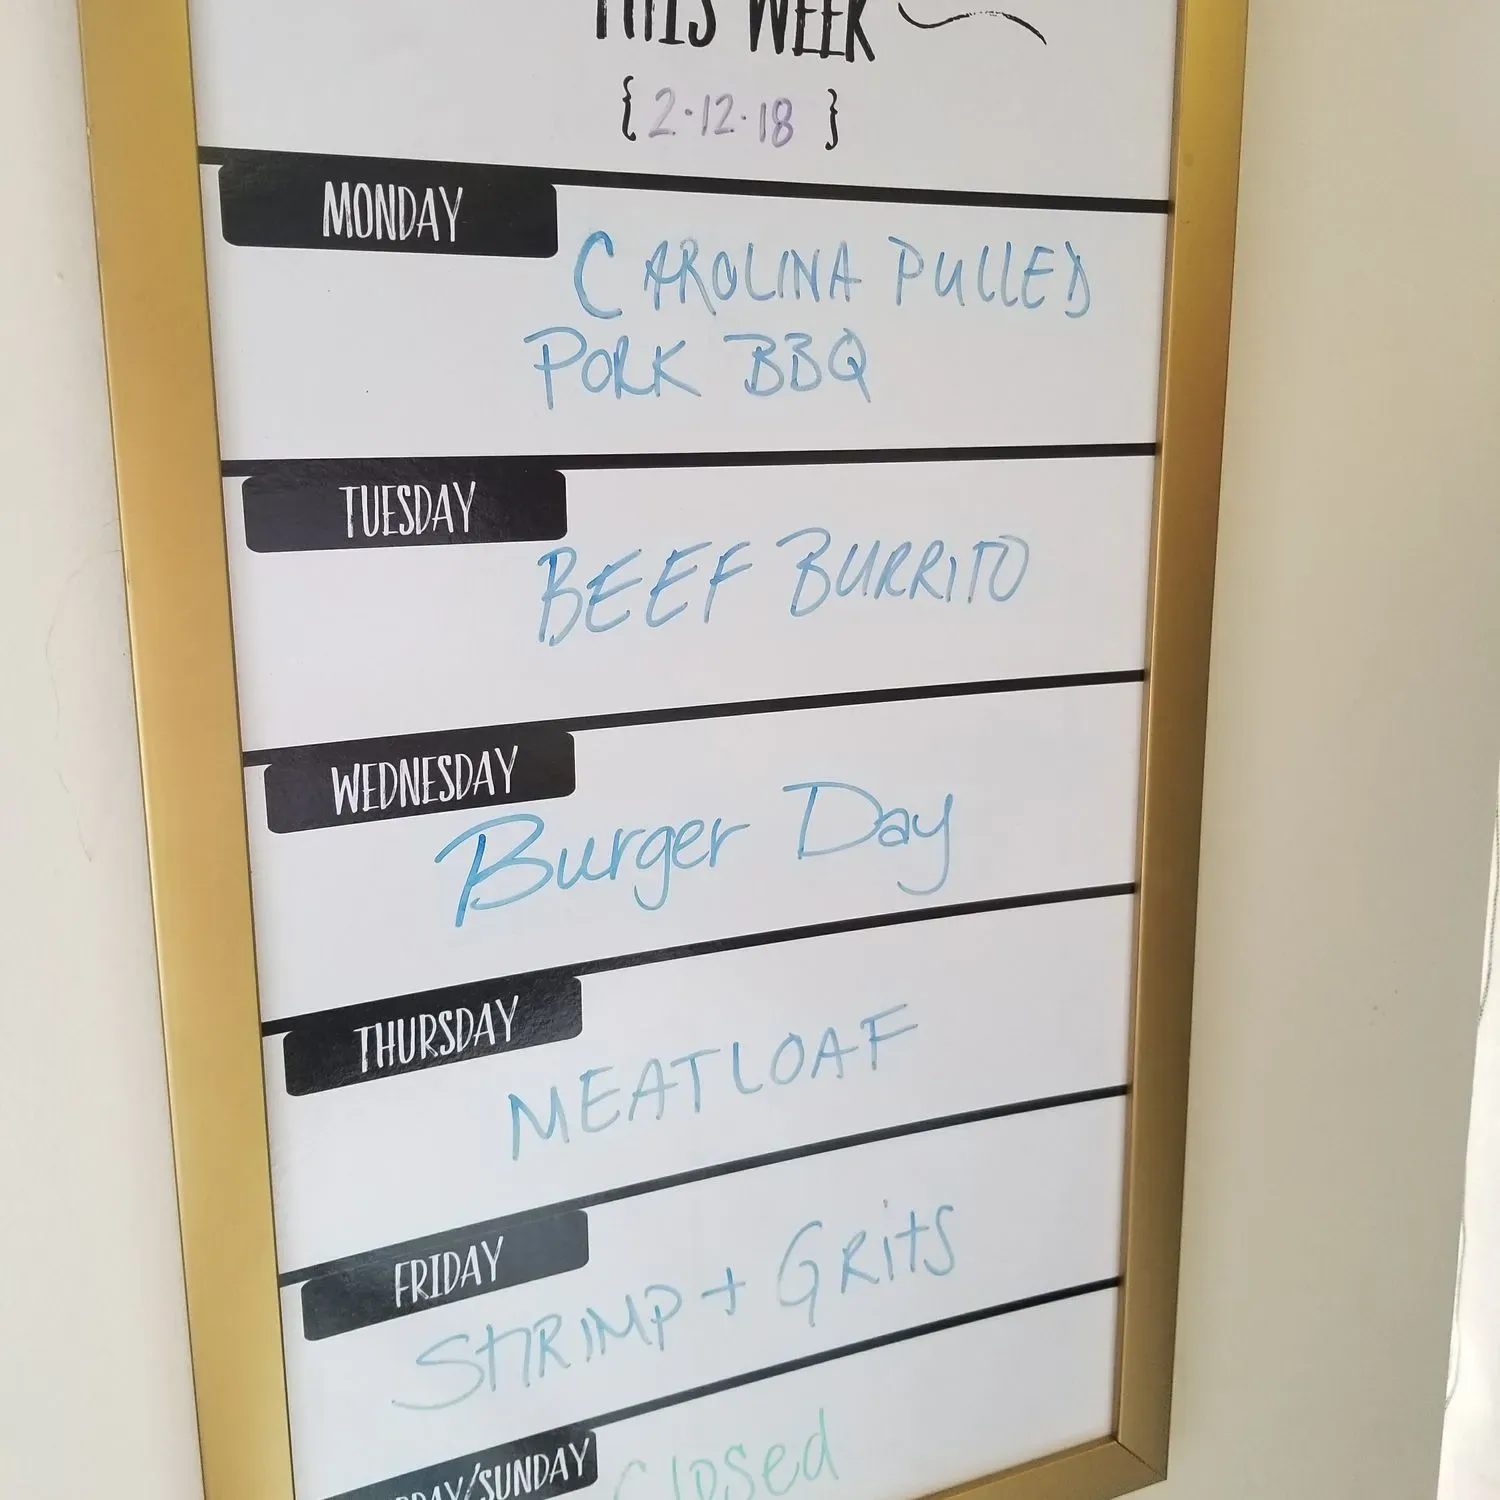 THIS WEEK
{ 2·12·18 }
MONDAY
CAROLINA PULLED
PORK BBQ
TUESDAY
BEEF BURRITO
WEDNESDAY
Burger Day
THURSDAY
MEATLOAF
FRIDAY
SHRIMP + GRitS
/SUNDAY
Closed